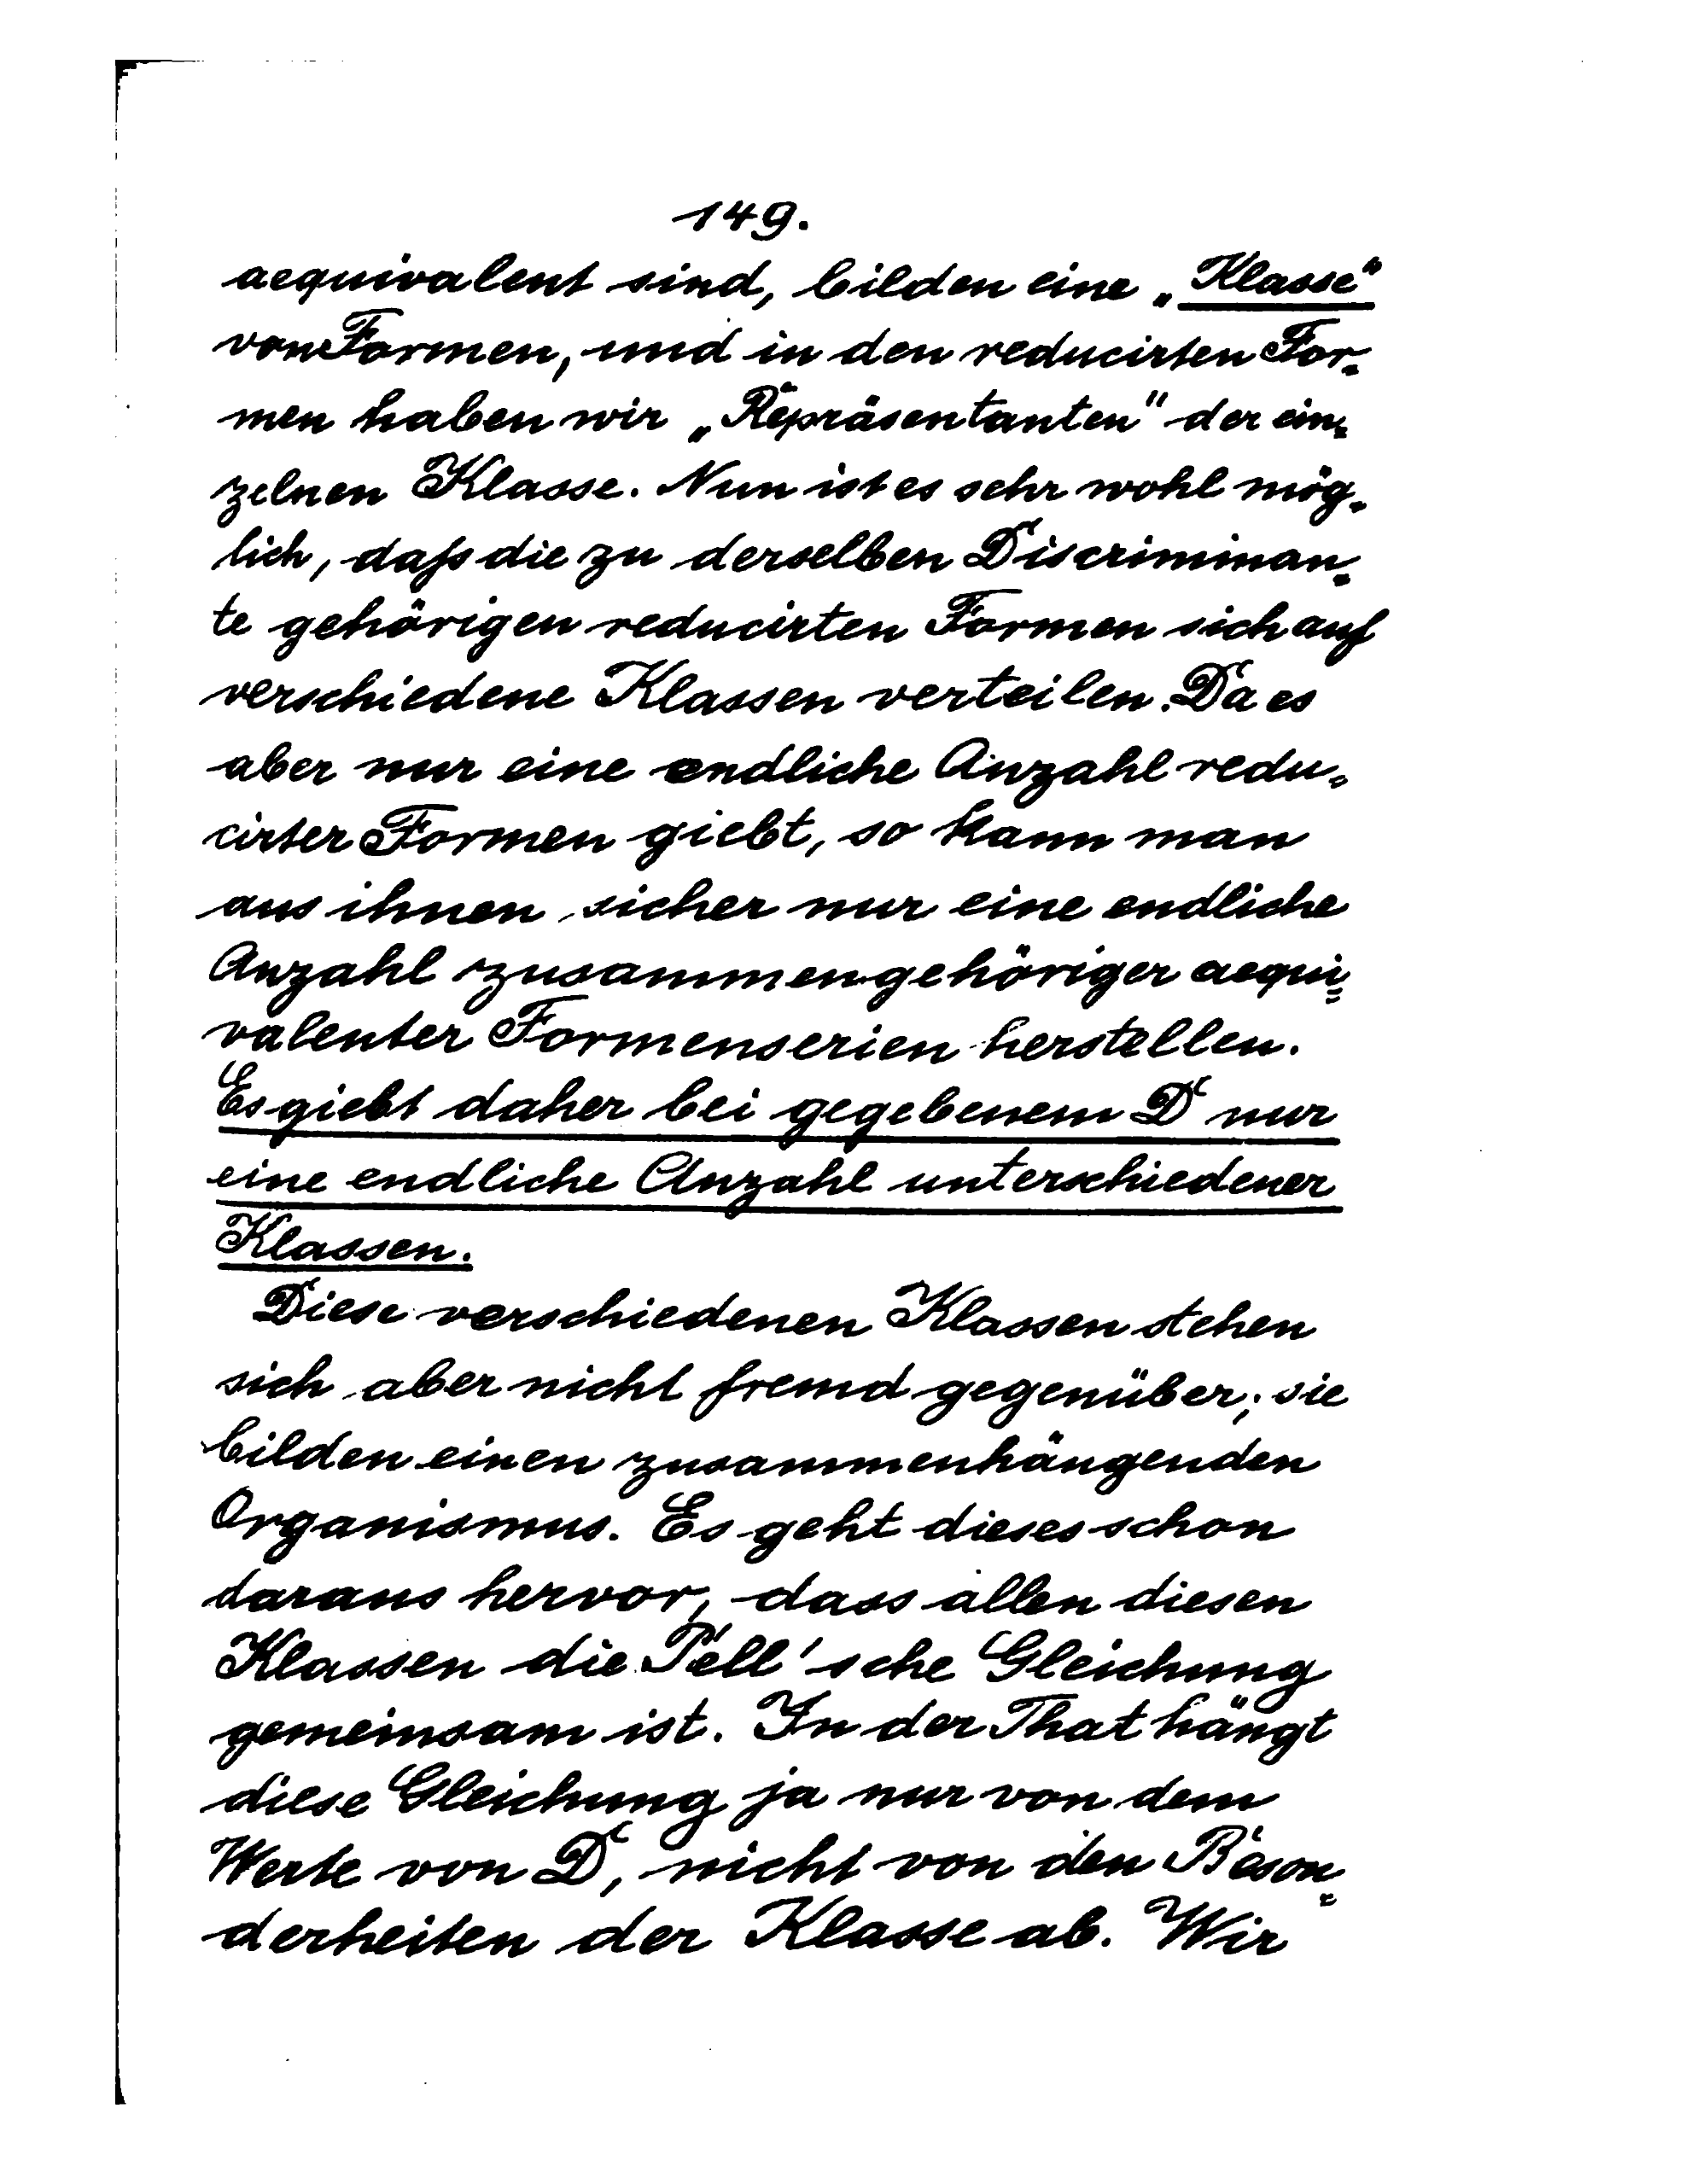 149.
aequivalent sind, bilden eine „Klasse“
von Formen, und in den reducirten For-
men haben wir „Repräsentanten“ der ein-
zelnen Klasse. Nun ist es sehr wohl mög-
lich, daß die zu derselben Discriminan-
te gehörigen reducirten Formen sich auf
verschiedene Klassen verteilen. Da es
aber nur eine endliche Anzahl redu-
cirter Formen giebt, so kann man
aus ihnen sicher nur eine endliche
Anzahl zusammengehöriger aequi-
valenter Formenserien herstellen.
Es giebt daher bei gegebenem D nur
eine endliche Anzahl unterschiedener
Klassen.
Diese verschiedenen Klassen stehen
sich aber nicht fremd gegenüber; sie
bilden einen zusammenhängenden
Organismus. Es geht dieses schon
daraus hervor, dass allen diesen
Klassen die Pell'sche Gleichung
gemeinsam ist. In der That hängt
diese Gleichung ja nur von dem
Werte von D, nicht von den Beson-
derheiten der Klasse ab. Wir